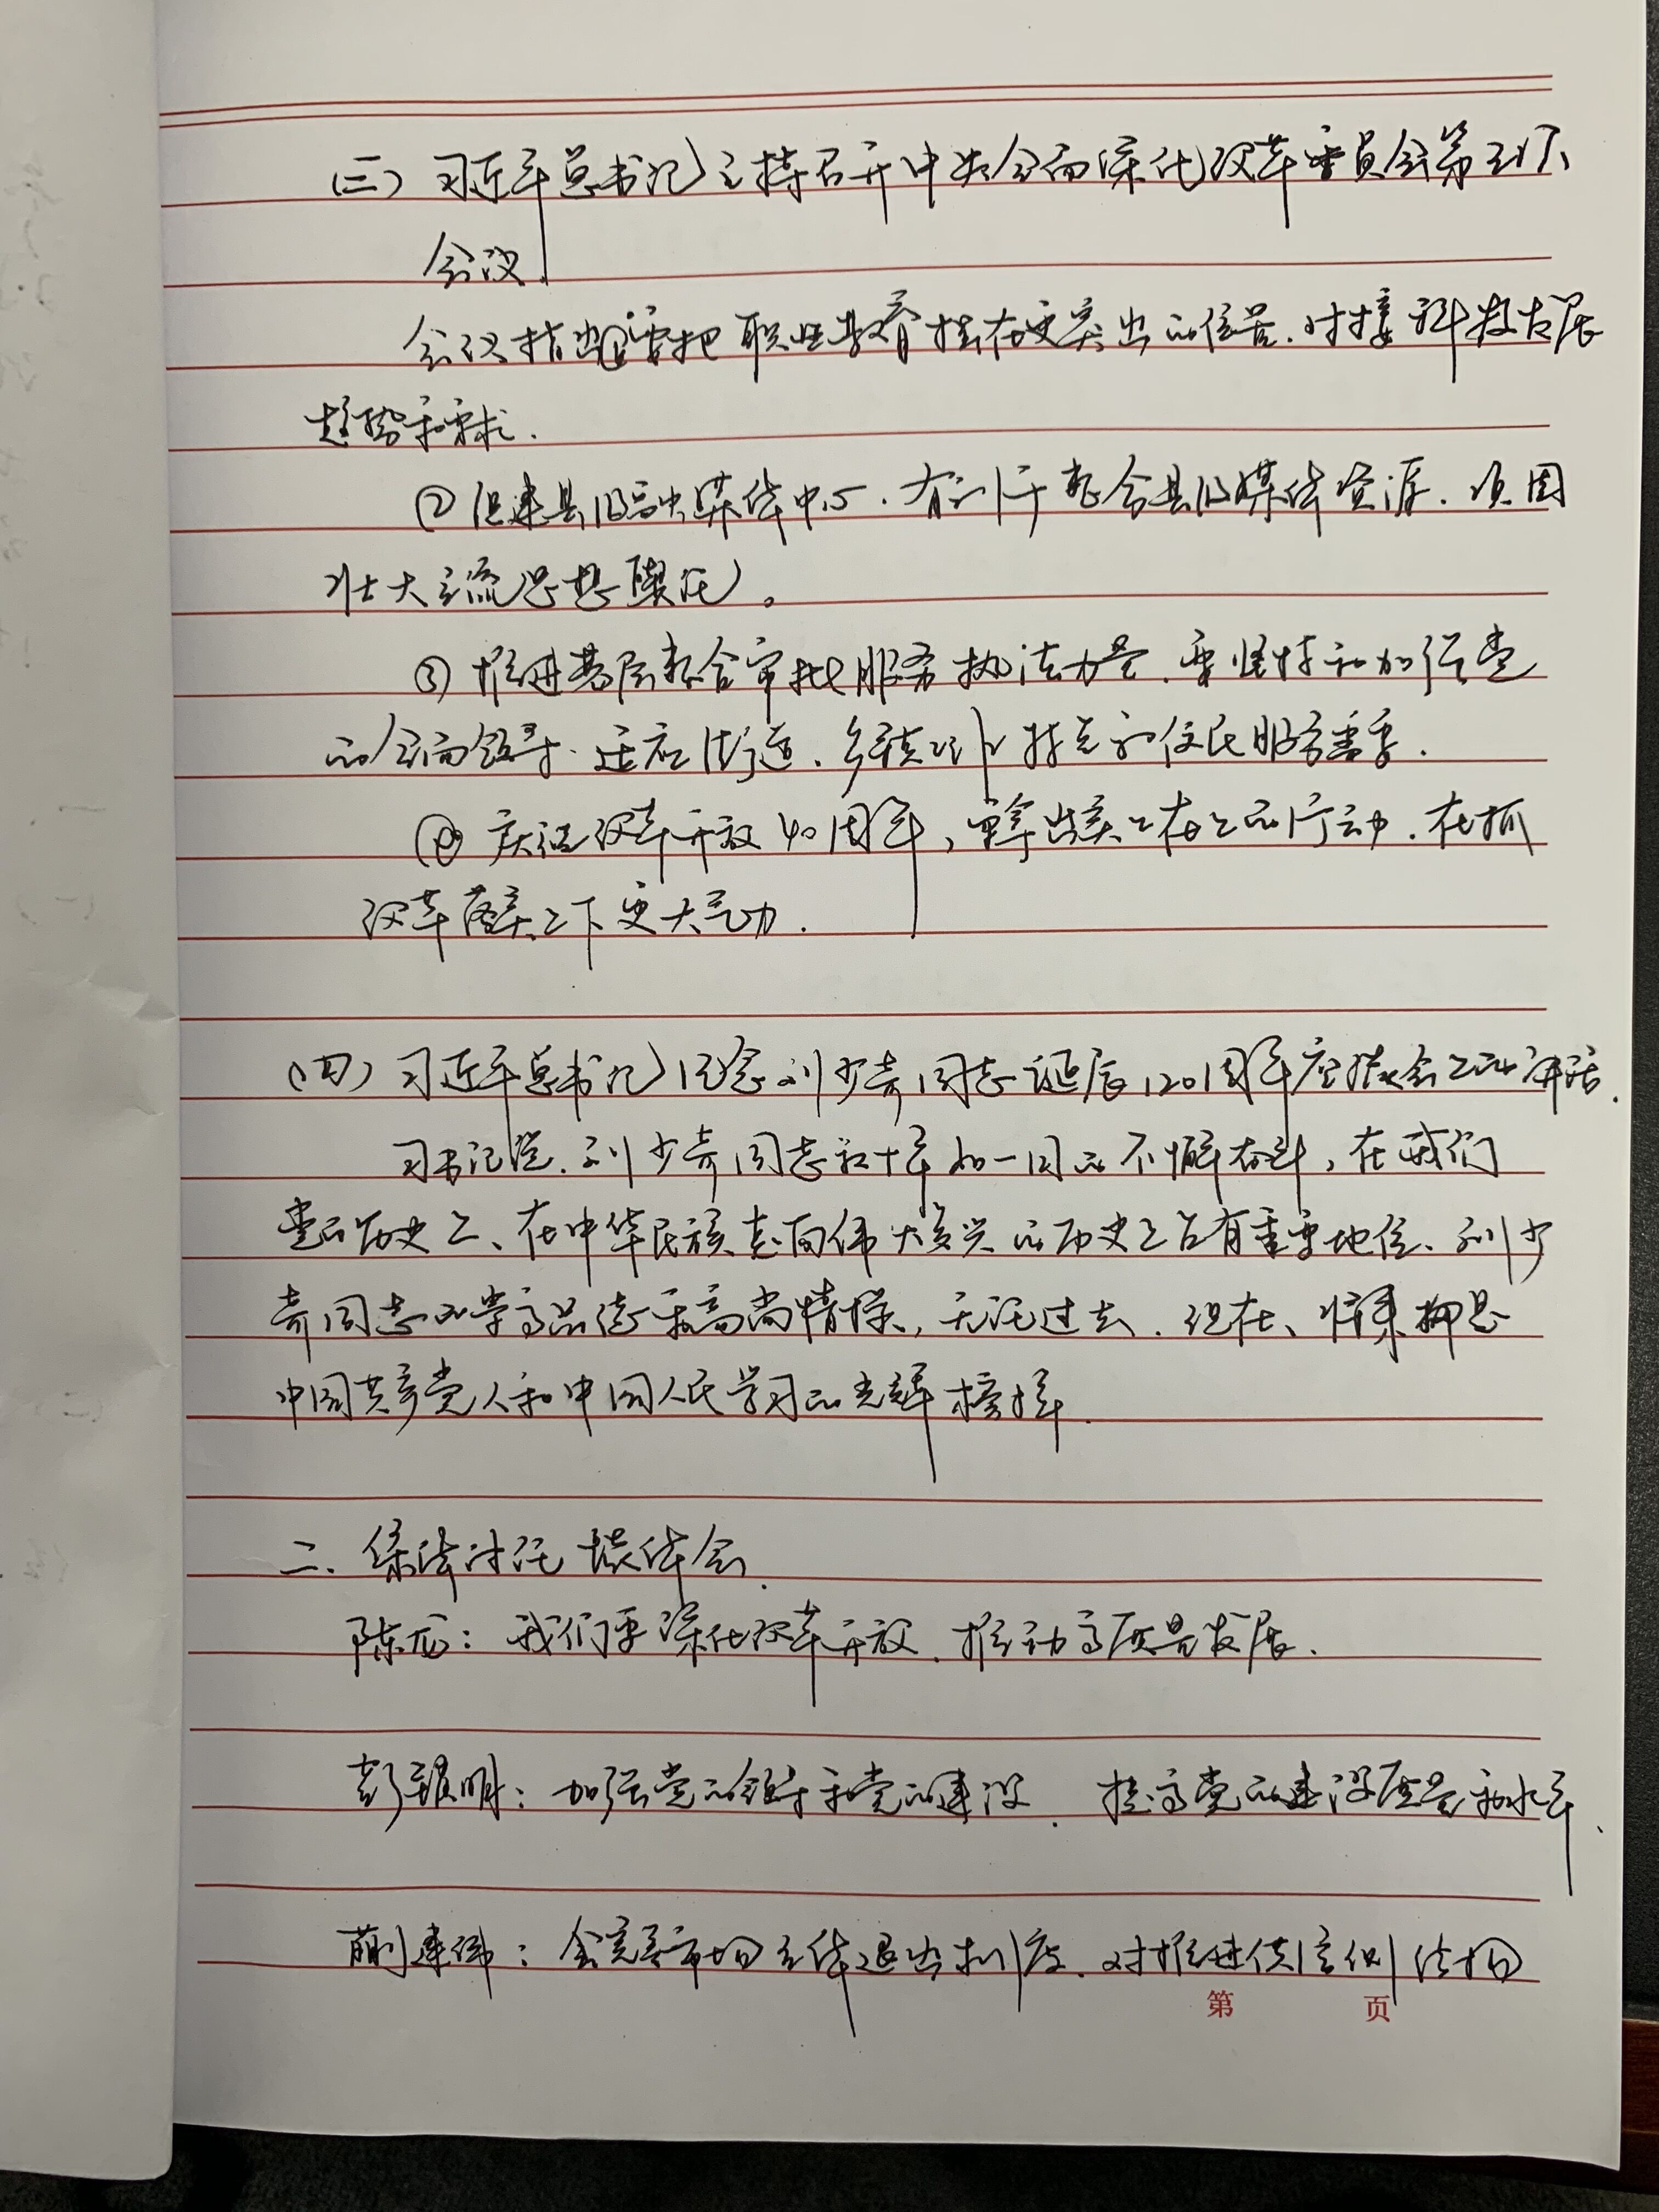 (三)习近平总书记主持召开中央全面深化改革委员会第五次
会议
会议指出①要把职业教育摆在更突出的位置.对接科技发展
趋势和需求.
②组建县级融媒体中心.有利于整合县级媒体资源.巩固
壮大主流思想舆论。
③推进基层整合审批服务执法力量.要坚持和加强党
的全面领导.适应街道、乡镇工作特点和便民服务需要.
④庆祝改革开放40周年,要拿出实在的行动.在抓
改革落实上下更大气力.
(四)习近平总书记纪念刘少奇同志诞辰120周年座谈会上的讲话.
习书记说.刘少奇同志数十年如一日的不懈奋斗,在我们
党的历史上、在中华民族走向伟大复兴的历史上占有重要地位.刘少
奇同志的崇高品德和高尚情操,无论过去.现在、将来都是
中国共产党人和中国人民学习的光辉榜样.
二.集体讨论谈体会.
陈龙:我们要深化改革开放.推动高质量发展.
彭明:加强党的领导和党的建设.提高党的建设质量和水平.
蒯建伟:完善市场主体退出制度.对推进供给侧结构
第 页